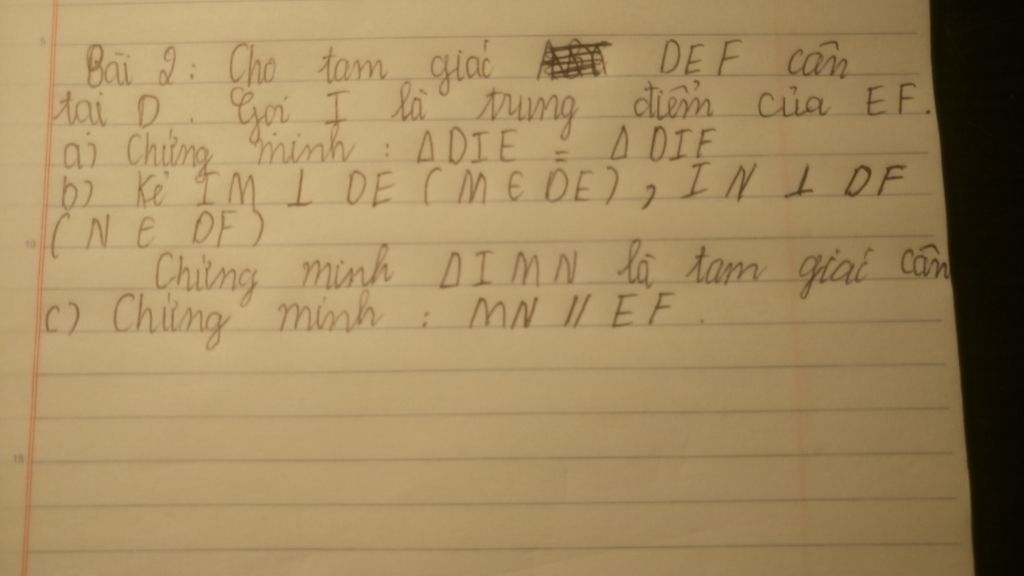 Bài 2: Cho tam giác DEF cân
tại D. Gọi I là trung điểm của EF.
a) Chứng minh: Δ DIE = Δ DIF
b) Kẻ IM ⊥ DE (M ∈ DE), IN ⊥ DF
(N ∈ DF)
Chứng minh Δ IMN là tam giác cân
c) Chứng minh: MN // EF.
5
10
15